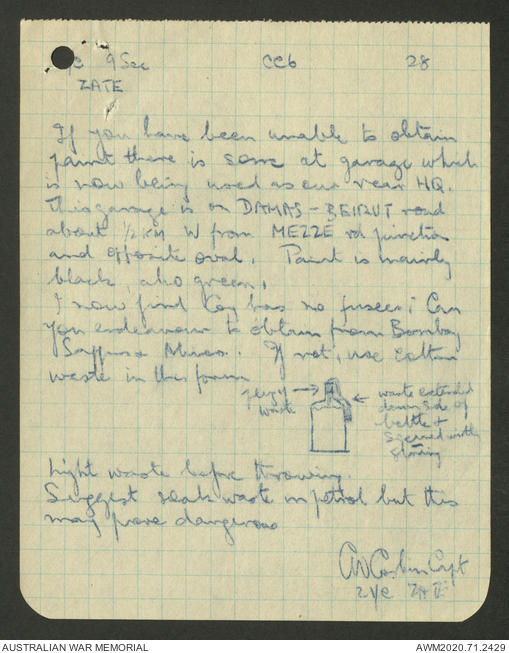 9 Sec CC6 28
ZATE
If you have been unable to obtain
paint there is some at garage which
is now being used as our rear HQ.
This garage is on DAMAS - BEIRUT road
about 1/2 KM W from MEZZE rd junction
and opposite oval. Paint is mainly
black, also green.
I now find Coy has no fusees; Can
you endeavour to obtain from Bombay
Sappers & Miners. If not, use cotton
waste in this form
waste
waste extended
down side of
bottle &
secured with
string
Light waste before throwing.
Suggest soak waste in petrol but this
may prove dangerous
Capt
2i/c
AUSTRALIAN WAR MEMORIAL AWM2020.71.2429